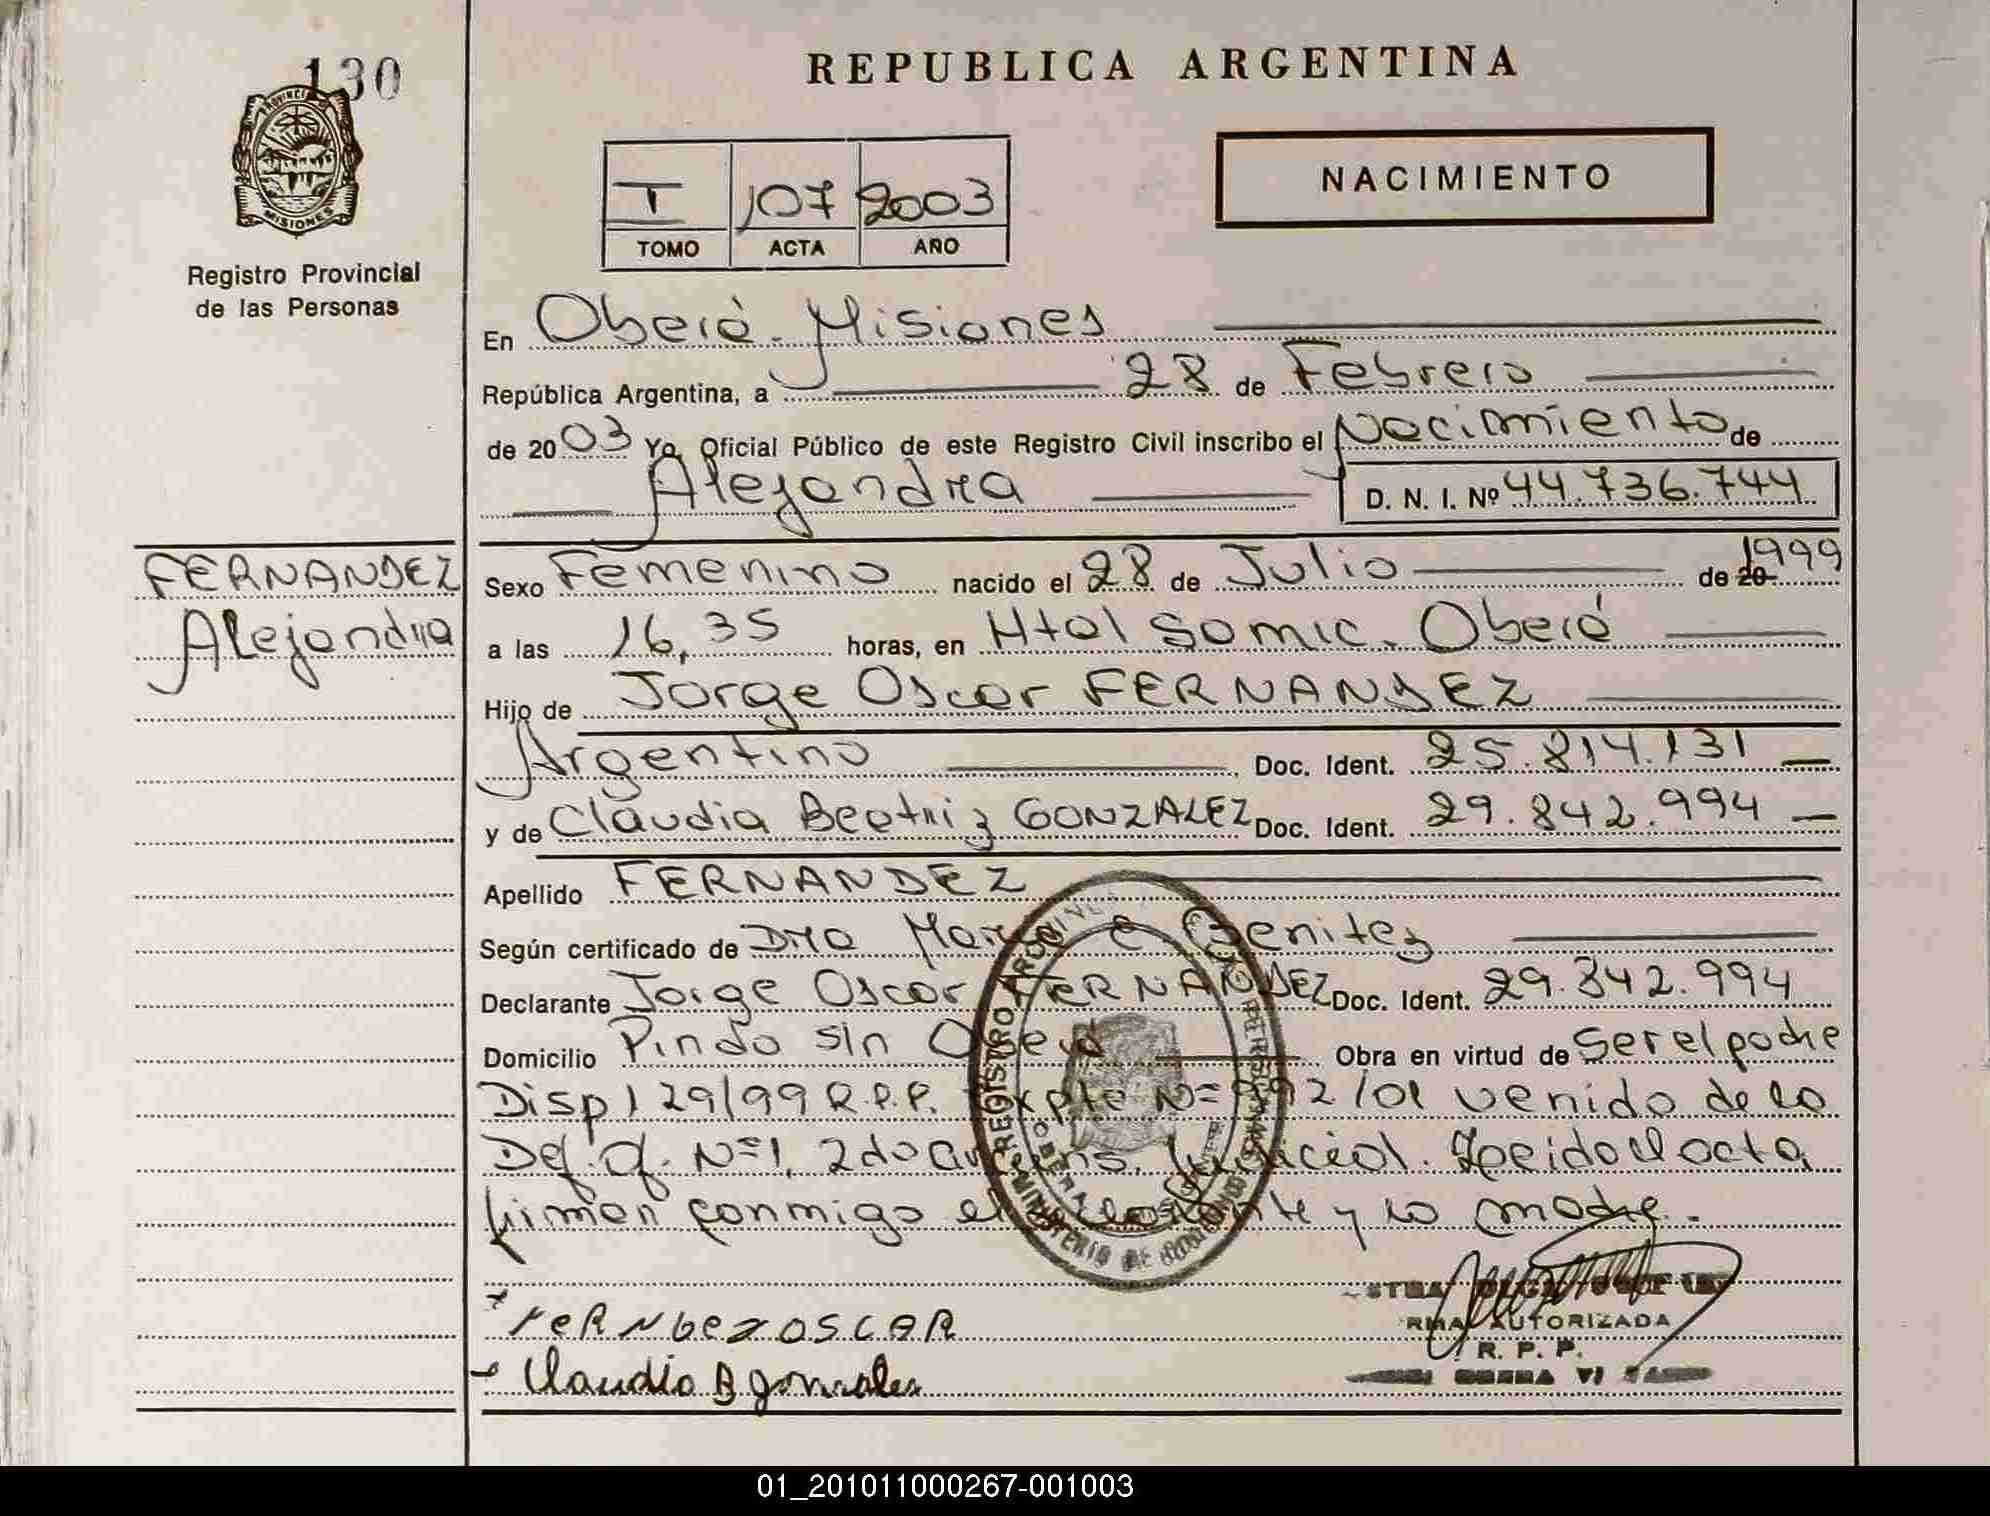 130
PROVINCIA
MISIONES
Registro Provincial
de las Personas
REPUBLICA ARGENTINA
NACIMIENTO
I 107 2003
TOMO ACTA AÑO
En Oberá - Misiones
República Argentina, a 28 de Febrero
de 2003 Yo, Oficial Público de este Registro Civil inscribo el Nacimiento de
Alejandra D. N. I. Nº 44.736.744
FERNANDEZ
Alejandra
Sexo Femenino nacido el 28 de Julio de 20 1999
a las 16,35 horas, en Htal Samic. Oberá
Hijo de Jorge Oscar FERNANDEZ
Argentino Doc. Ident. 25.814.131
y de Claudia Beatriz GONZALEZ Doc. Ident. 29.842.994
Apellido FERNANDEZ
Según certificado de Dra Benitez
Declarante Jorge Oscar FERNANDEZ Doc. Ident. 29.842.994
Domicilio Pindo S/n Oberá Obra en virtud de ser el padre
Disp 129/99 R.P.P. Expte Nº /01 venido de la
Def. Of. Nº 1, 2do Judicial. Leido el acta
firman conmigo el y la madre.
REGISTRO
MINISTERIO DE
OBERA
FERNDEZ OSCAR
Claudia B Gonzalez
AUTORIZADA
R. P. P.
01_201011000267-001003